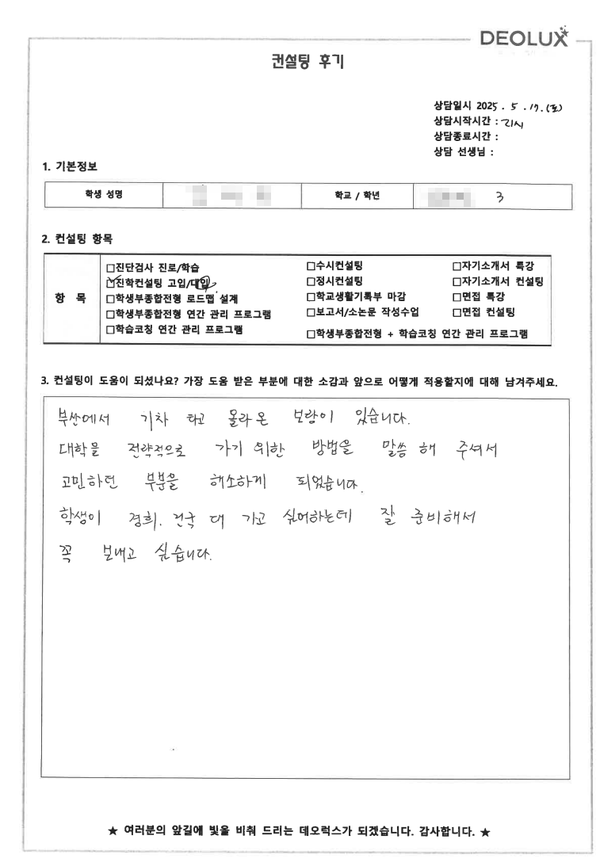 DEOLUX
컨설팅 후기
상담일시 2025. 5. 17. (토)
상담시작시간 : 2시
상담종료시간 :
상담 선생님 :
1. 기본정보
학생 성명 학교 / 학년 3
2. 컨설팅 항목
항 목
□진단검사 진로/학습 □수시컨설팅 □자기소개서 특강
☑진학컨설팅 고입/대입 □정시컨설팅 □자기소개서 컨설팅
□학생부종합전형 로드맵 설계 □학교생활기록부 마감 □면접 특강
□학생부종합전형 연간 관리 프로그램 □보고서/소논문 작성수업 □면접 컨설팅
□학습코칭 연간 관리 프로그램 □학생부종합전형 + 학습코칭 연간 관리 프로그램
3. 컨설팅이 도움이 되셨나요? 가장 도움 받은 부분에 대한 소감과 앞으로 어떻게 적용할지에 대해 남겨주세요.
부산에서 기차 타고 올라온 보람이 있습니다.
대학을 전략적으로 가기 위한 방법을 말씀 해 주셔서
고민하던 부분을 해소하게 되었습니다.
학생이 경희, 건국 대 가고 싶어하는데 잘 준비해서
꼭 보내고 싶습니다.
★ 여러분의 앞길에 빛을 비춰 드리는 데오럭스가 되겠습니다. 감사합니다. ★